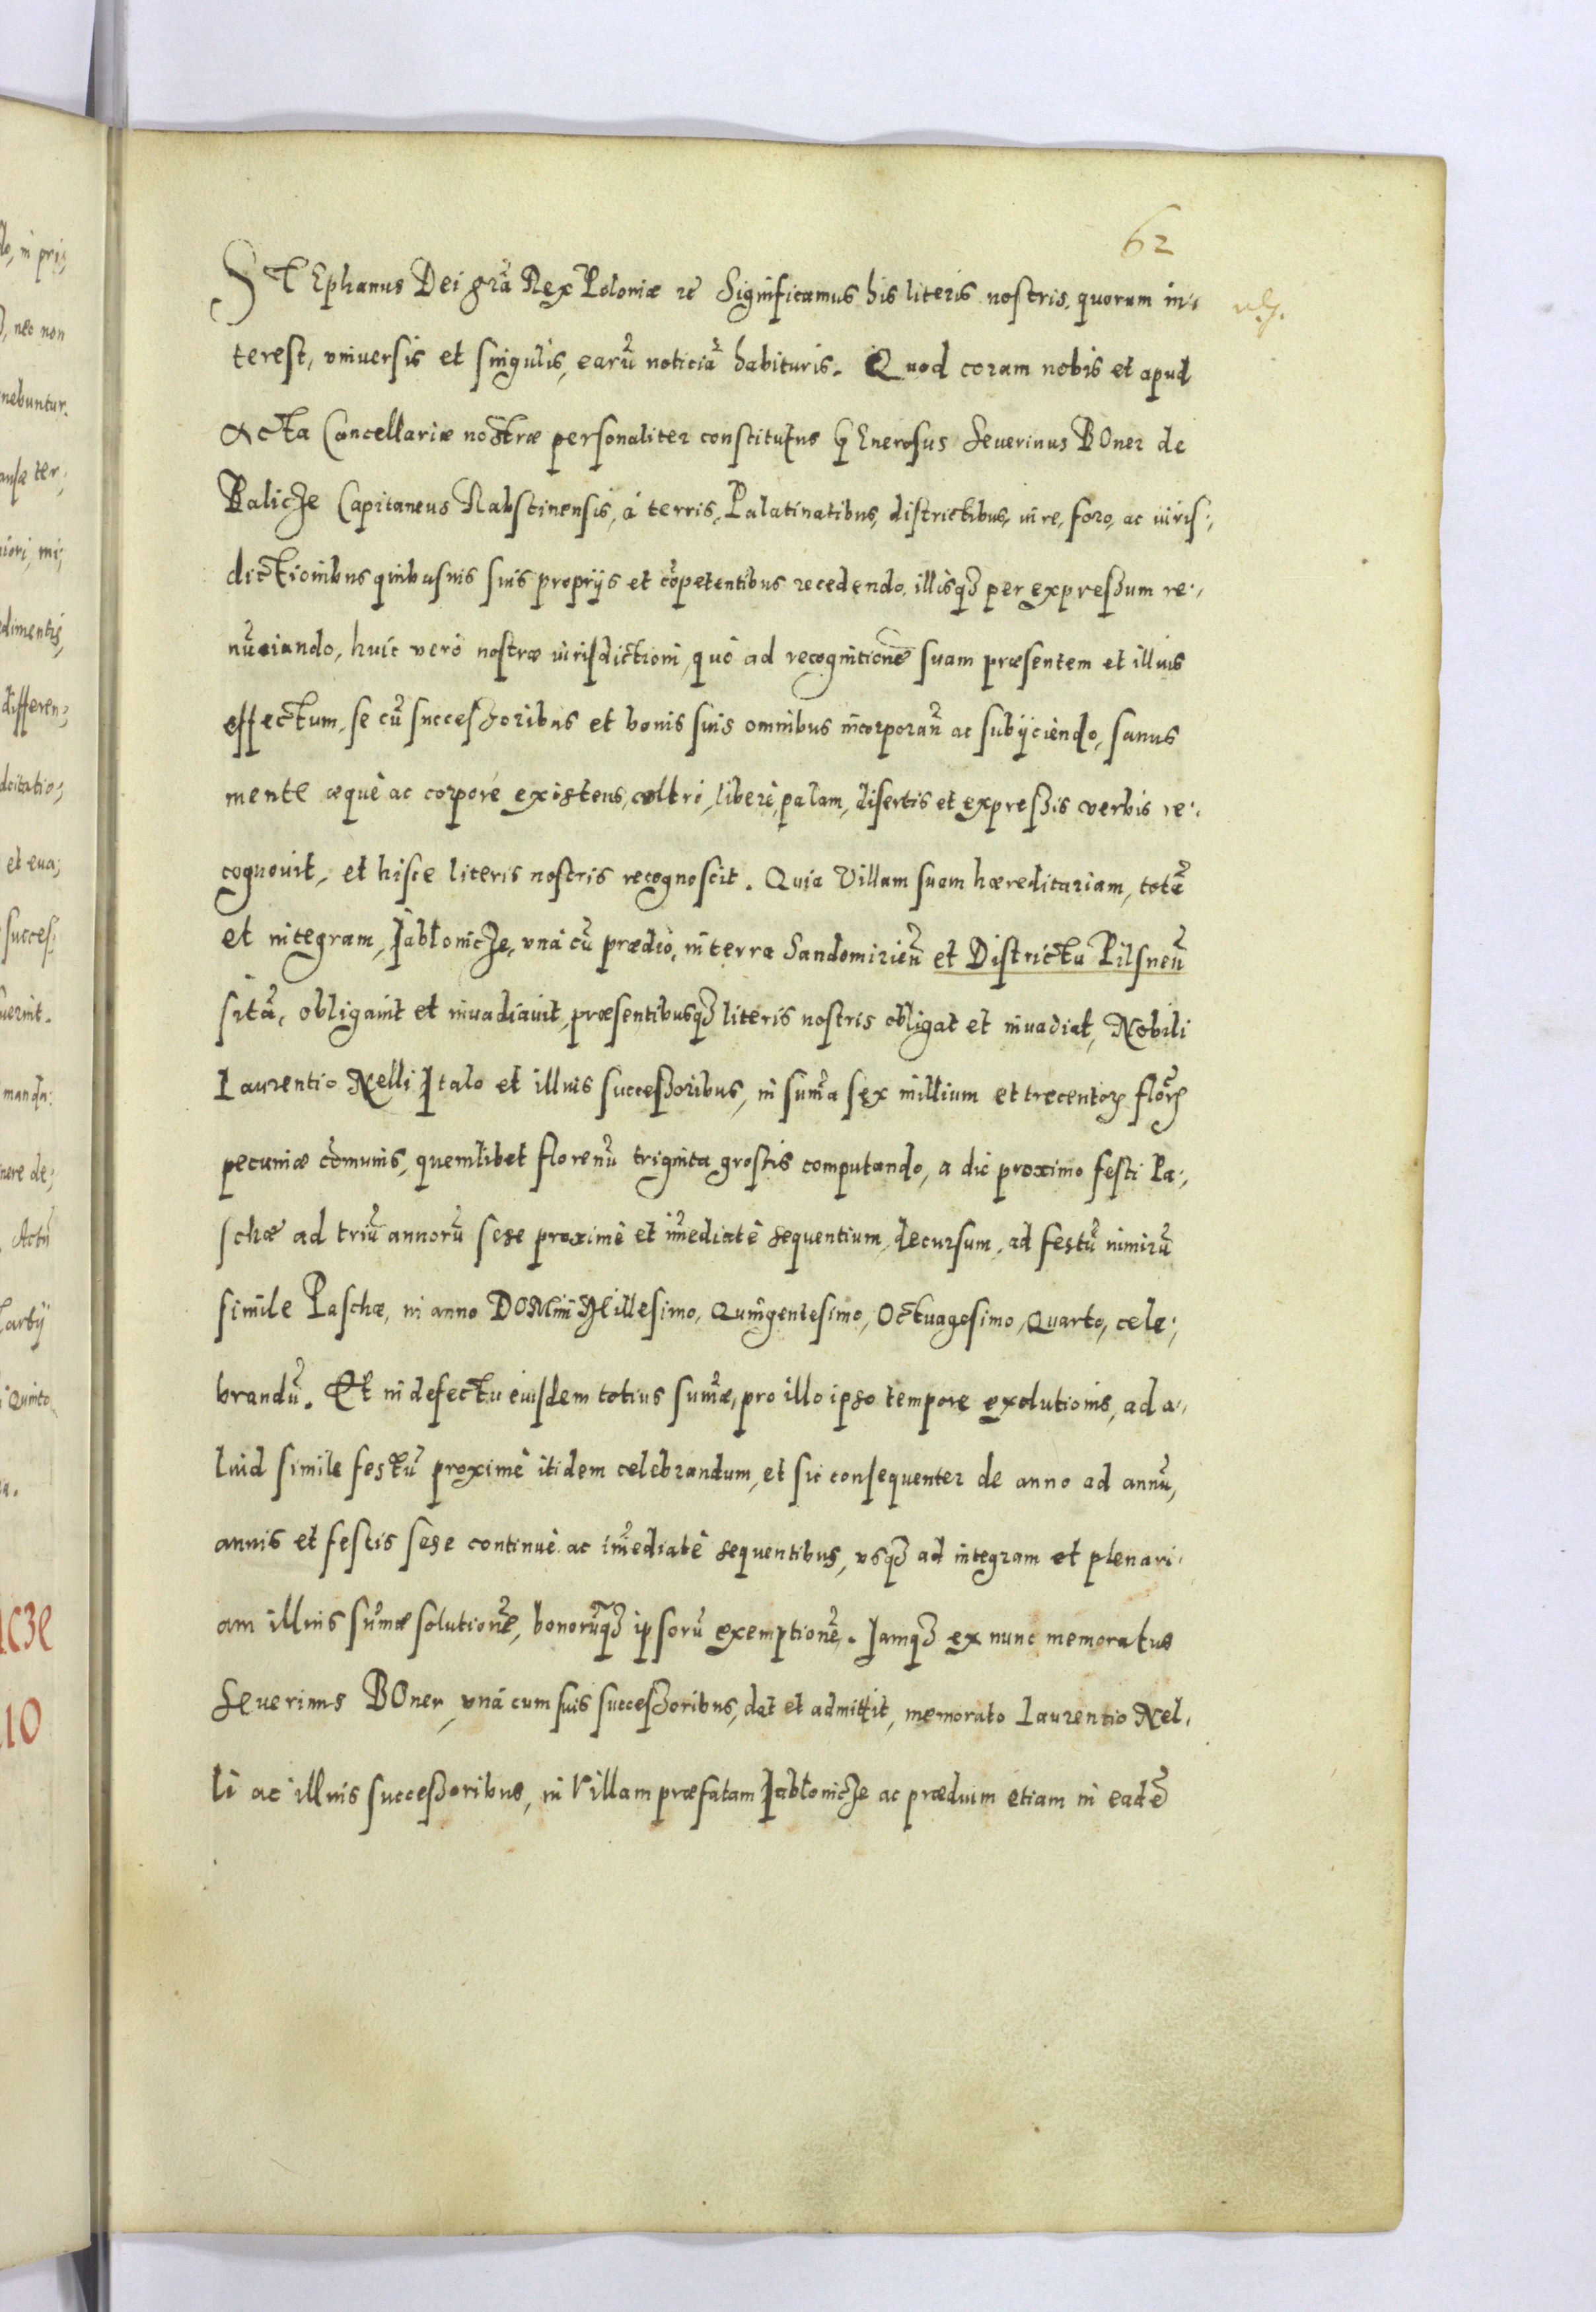 62
STEphanus Dei gr̃a Rex Poloniæ ꝛc Significamus his literis nostris, quorum in:
terest, vniuersis et singulis, earũ noticiã habituris. Quod coram nobis et apud
Acta Cancellariæ nostræ personaliter constitutus GEnerosus Seuerinus BOner de
Balicze Capitaneus Rabstinensis, á terris, Palatinatibus, districtibus, iure, foro, ac iuris:
dictionibus quibusuis suis proprijs et cõpetentibus recedendo, illisqȝ per expressum re:
nũciando, huic verò nostræ iurisdictioni, quò ad recognitionẽ suam præsentem et illius
effectum, se cũ successoribus et bonis suis omnibus incorporañ ac subijciendo, sanus
mente æquè ac corpore existens, vltrò, liberè, palam, disertis et expressis verbis re:
cognouit, et hisce literis nostris recognoscit. Quia Villam suam hæreditariam, totã
et integram, Jabłonicze, vná cũ prædio, in terra Sandomirieñ et Districtu Pilsneñ
sitã, obligauit et inuadiauit, præsentibusqȝ literis nostris obligat et inuadiat, Nobili
Laurentio Nelli Italo et illius successoribus, in sum̃a sex millium et trecentoꝝ floꝝ
pecuniæ cõmunis, quemlibet florenũ triginta grossis computando, a die proximo festi Pa:
schæ ad triũ annorũ sese proximè et im̃ediatè sequentium, decursum, ad festũ nimirũ
simile Paschæ, in anno DOMini Millesimo, Quingentesimo, Octuagesimo, Quarto, cele:
brandũ. Et in defectu eiusdem totius sum̃æ, pro illo ipso tempore exolutionis, ad a:
liud simile festũ proximè itidem celebrandum, et sic consequenter de anno ad annũ,
annis et festis sese continuè ac im̃ediatè sequentibus, vsqȝ ad integram et plenari:
am illius sum̃æ solutionẽ, bonorũqȝ ipsorũ exemptionẽ. Jamqȝ ex nunc memoratus
Seuerinus BOner, vná cum suis successoribus, dat et admittit, memorato Laurentio Nel:
li ac illius successoribus, in Villam præfatam Jabłonicze ac prædium etiam in eadẽ